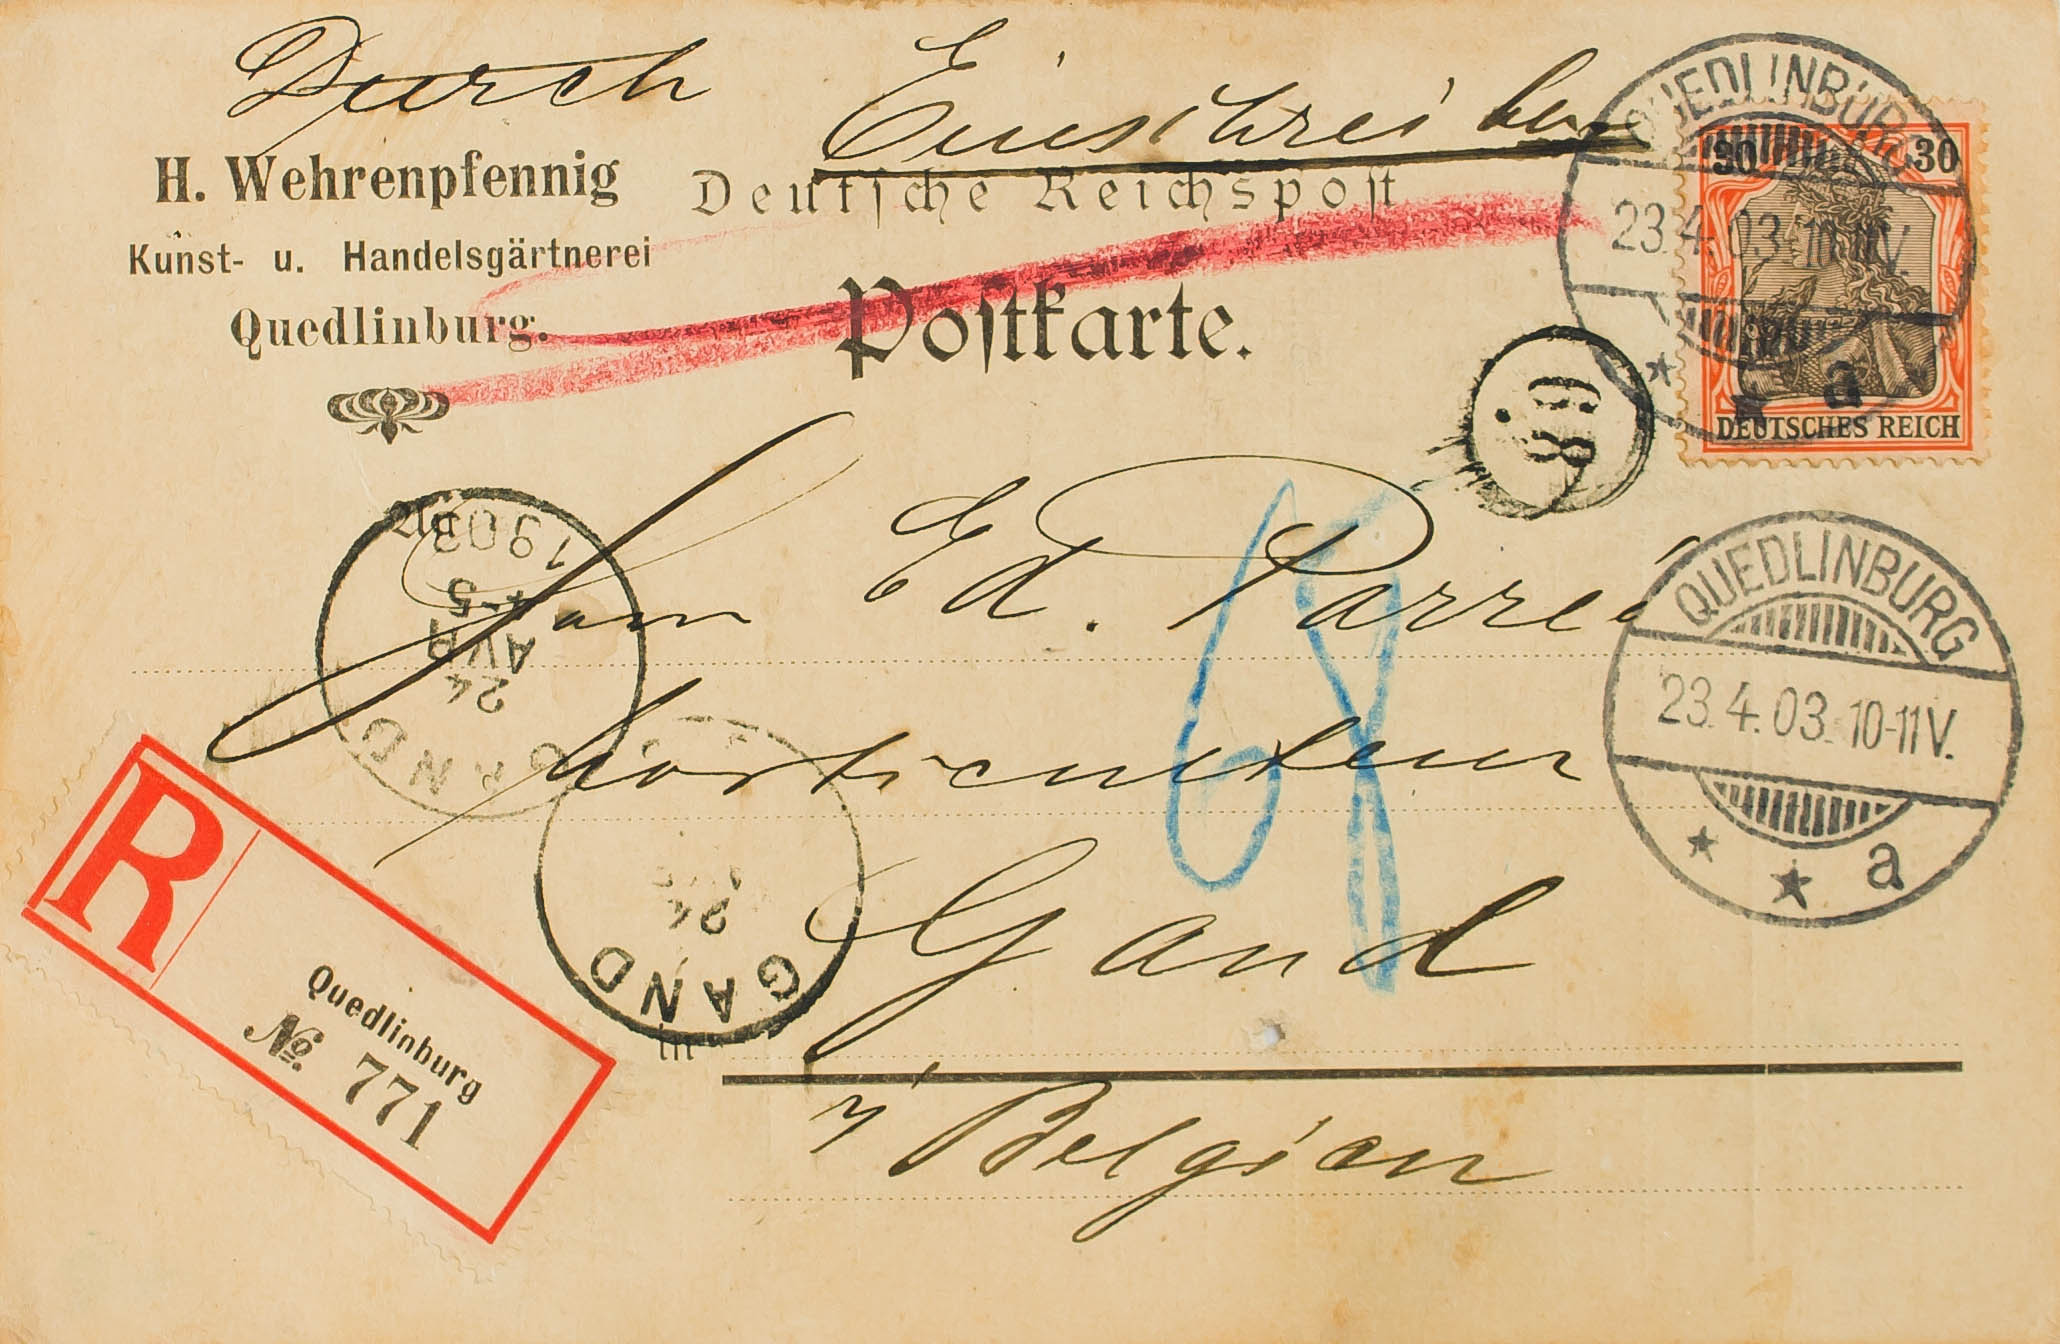 Durch Einschreiben
H. Wehrenpfennig
Kunst- u. Handelsgärtnerei
Quedlinburg.
Deutsche Reichspost
Postkarte.
QUEDLINBURG
23.4.03.10-11V.
a
30 30
DEUTSCHES REICH
An
Ed. Parré
horticulteur
Gand
in
i/ Belgien
68
QUEDLINBURG
23.4.03.10-11V.
a
GAND
24
AVR
5
1903
GAND
24
R
Quedlinburg
No. 771